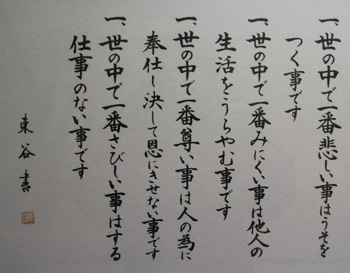 一、世の中で一番悲しい事はうそを
つく事です
一、世の中で一番みにくい事は他人の
生活をうらやむ事です
一、世の中で一番尊い事は人の為に
奉仕し決して恩にきせない事です
一、世の中で一番さびしい事はする
仕事のない事です
東谷書